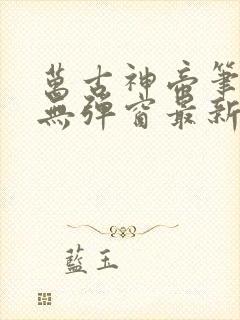 萬古神帝筆
無彈窗最新
藍玉